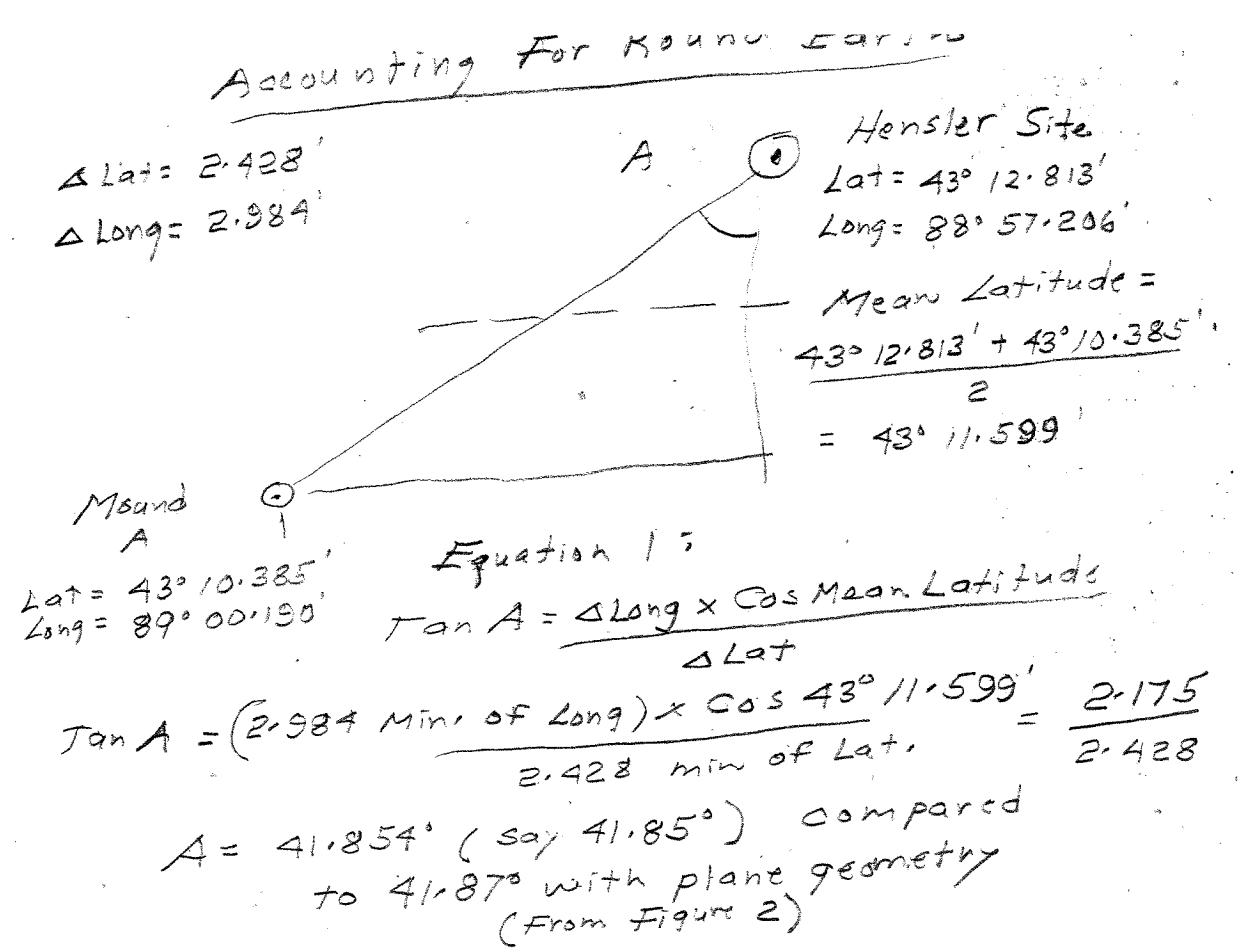 Accounting For Round Earth
Δ Lat = 2.428'
Δ Long = 2.984'
A
Hensler Site
Lat = 43° 12.813'
Long = 88° 57.206'
Mean Latitude =
43° 12.813' + 43° 10.385'
2
= 43° 11.599'
Mound
A
Lat = 43° 10.385'
Long = 89° 00.190'
Equation 1:
Tan A = ΔLong x Cos Mean Latitude
Δ Lat
Tan A = (2.984 Min. of Long) x Cos 43° 11.599' = 2.175
2.428 min of Lat. 2.428
A = 41.854° (say 41.85°) compared
to 41.87° with plane geometry
(From Figure 2)